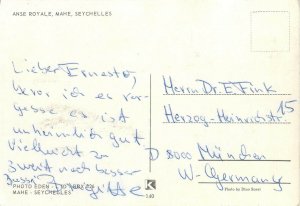 ANSE ROYALE, MAHE, SEYCHELLES
Lieber Ernesto,
bevor ich es ver-
gesse es ist
unheimlich gut
Vielleicht zu
zweit noch besser
Bussi Brigitte
PHOTO EDEN - P.O. BOX
MAHE - SEYCHELLES
K
140
Herrn Dr. E. Fink
Herzog-Heinrichstr 15
D 8000 München
W-Germany
Photo by Dino Sassi